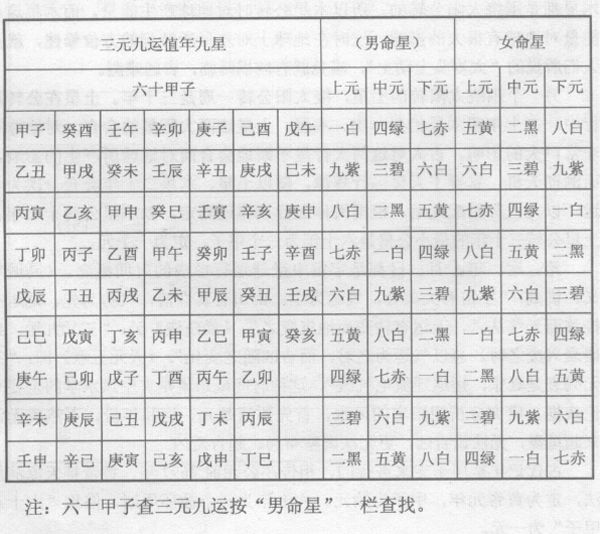 三元九运值年九星 （男命星） 女命星
六十甲子 上元 中元 下元 上元 中元 下元
甲子 癸酉 壬午 辛卯 庚子 己酉 戊午 一白 四绿 七赤 五黄 二黑 八白
乙丑 甲戌 癸未 壬辰 辛丑 庚戌 己未 九紫 三碧 六白 六白 三碧 九紫
丙寅 乙亥 甲申 癸巳 壬寅 辛亥 庚申 八白 二黑 五黄 七赤 四绿 一白
丁卯 丙子 乙酉 甲午 癸卯 壬子 辛酉 七赤 一白 四绿 八白 五黄 二黑
戊辰 丁丑 丙戌 乙未 甲辰 癸丑 壬戌 六白 九紫 三碧 九紫 六白 三碧
己巳 戊寅 丁亥 丙申 乙巳 甲寅 癸亥 五黄 八白 二黑 一白 七赤 四绿
庚午 己卯 戊子 丁酉 丙午 乙卯 四绿 七赤 一白 二黑 八白 五黄
辛未 庚辰 己丑 戊戌 丁未 丙辰 三碧 六白 九紫 三碧 九紫 六白
壬申 辛巳 庚寅 己亥 戊申 丁巳 二黑 五黄 八白 四绿 一白 七赤
注：六十甲子查三元九运按“男命星”一栏查找。